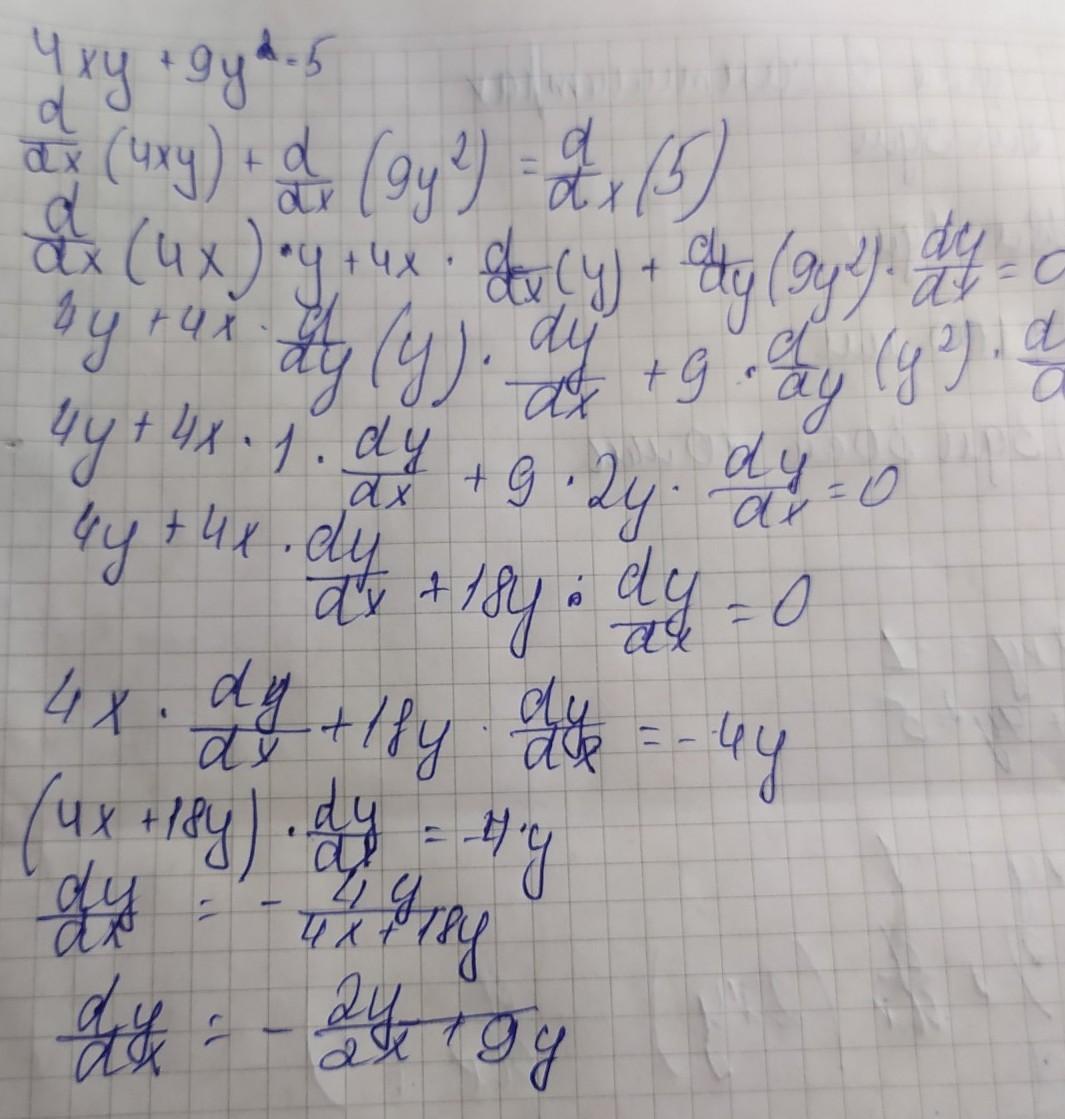 4xy + 9y² = 5
d/dx (4xy) + d/dx (9y²) = d/dx (5)
d/dx (4x) · y + 4x · d/dx (y) + d/dy (9y²) · dy/dx = 0
4y + 4x · d/dy (y) · dy/dx + 9 · d/dy (y²) · d
4y + 4x · 1 · dy/dx + 9 · 2y · dy/dx = 0
4y + 4x · dy/dx + 18y · dy/dx = 0
4x · dy/dx + 18y · dy/dx = -4y
(4x + 18y) · dy/dx = -4·y
dy/dx = - 4y/(4x + 18y)
dy/dx = - 2y/(2x + 9y)